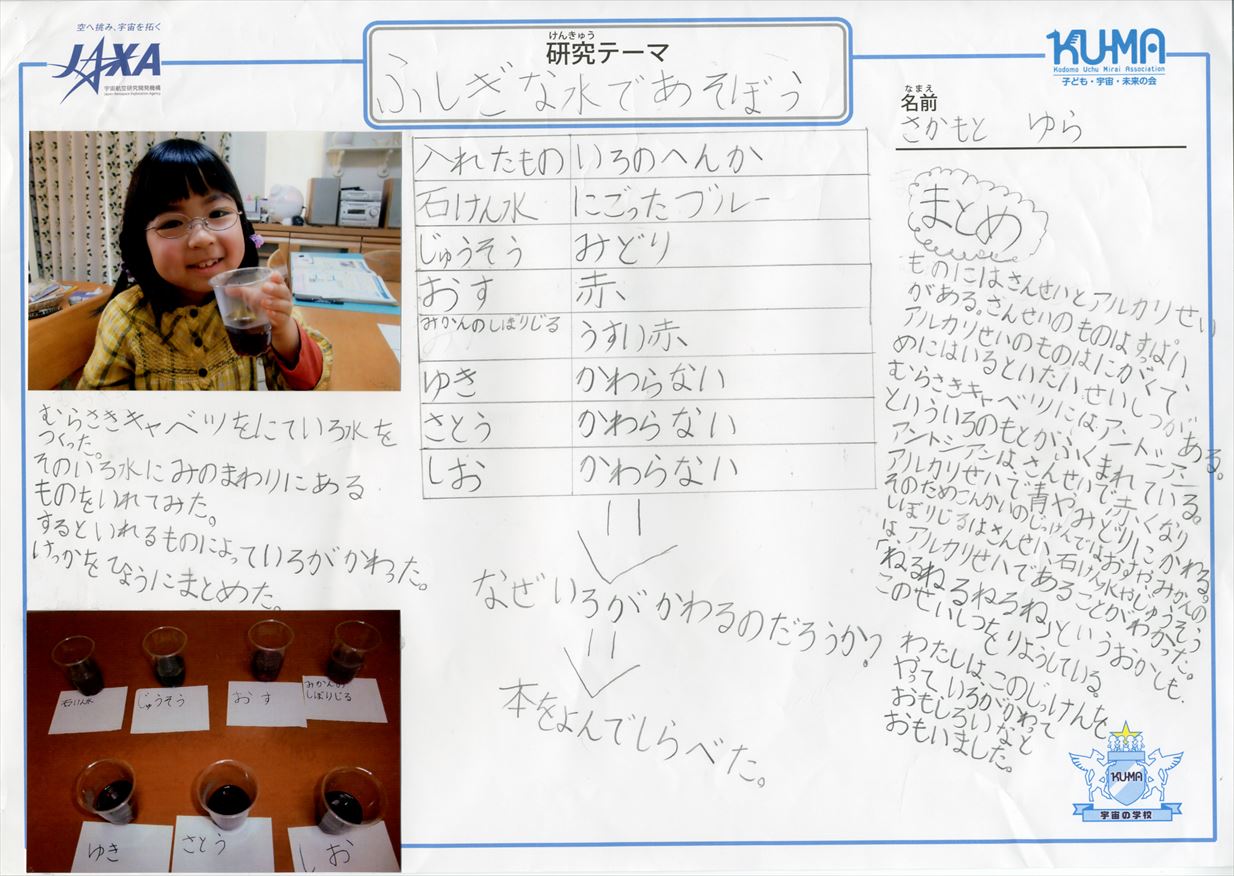 空へ挑み、宇宙を拓く
JAXA
宇宙航空研究開発機構
Japan Aerospace Exploration Agency
けんきゅう
研究テーマ
ふしぎな水であそぼう
KU-MA
Kodomo Uchu Mirai Association
子ども・宇宙・未来の会
なまえ
名前
さかもと ゆら
入れたもの いろのへんか
石けん水 にごったブルー
じゅうそう みどり
おす 赤
みかんのしぼりじる うすい赤
ゆき かわらない
さとう かわらない
しお かわらない
むらさきキャベツをにていろ水を
つくった。
そのいろ水にみのまわりにある
ものをいれてみた。
するといれるものによっていろがかわった。
けっかをひょうにまとめた。
石けん水
じゅうそう
おす
みかんの
しぼりじる
ゆき
さとう
しお
なぜいろがかわるのだろうか?
本をよんでしらべた。
まとめ
ものにはさんせいとアルカリせい
がある。さんせいのものはすっぱい、
アルカリせいのものはにがくて、
めにはいるといたいせいしつがある。
むらさきキャベツにはアントシアン
といういろのもとがふくまれている。
アントシアンは、さんせいで赤くなり
アルカリせいで青やみどりにかわる。
そのためこんかいのじっけんではおすや、みかんの
しぼりじるはさんせい、石けん水やじゅうそう
は、アルカリせいであることがわかった。
「ねるねるねるね」というおかしも、
このせいしつをりようしている。
わたしは、このじっけんを
やって、いろがかわって
おもしろいなと
おもいました。
KU-MA
宇宙の学校